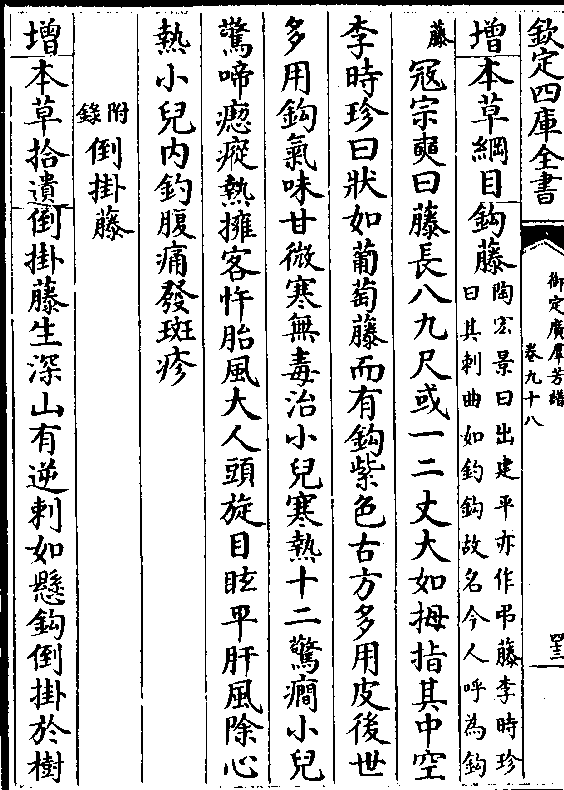 欽定四庫全書
御定廣羣芳譜
卷九十八
增本草綱目鈎藤陶宏景曰出建平亦作弔藤李時珍
曰其刺曲如釣鈎故名今人呼為鈎
藤
冦宗奭曰藤長八九尺或一二丈大如拇指其中空
李時珍曰狀如葡萄藤而有鈎紫色古方多用皮後世
多用鈎氣味甘微寒無毒治小兒寒熱十二驚癎小兒
驚啼瘛瘲熱擁客忤胎風大人頭旋目眩平肝風除心
熱小兒內釣腹痛發斑疹
附錄倒掛藤
增本草拾遺倒掛藤生深山有逆刺如懸鈎倒掛於樹